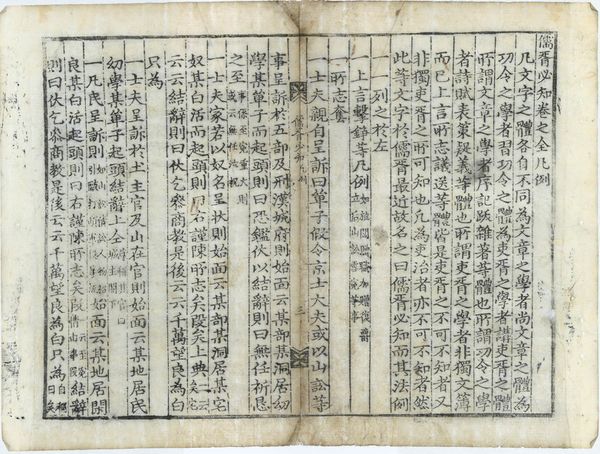 儒胥必知卷之全凡例
凡文字之體各自不同為文章之學者尚文章之體為
功令之學者習功令之體為吏胥之學者講吏胥之體
所謂文章之學者序記跋雜著等體也所謂功令之學
者詩賦表策疑義等體也所謂吏胥之學者非獨文簿
而已上言所志議送等體皆是吏胥之不可不知者又
非獨吏胥之所可知也凡為吏治者亦不可不知者然
此等文字於儒胥最近故名之曰儒胥必知而其法例
列之於左
一上言擊錚等凡例
一所志套
凡例
三
一士夫親自呈訴曰單子假令京士大夫或以山訟等
事呈訴於五部及刑漢城府則始面云某部某洞居幼
學某單子而起頭則曰恐鑑伏以結辭則曰無任祈恳
之至 事係至寃重大則或云無任泣祝
一士夫家若以奴名呈狀則始面云某部某洞居某宅
奴某白活而起頭則曰右謹陳所志矣段矣上典
云云結辭則曰伏乞參商教是後云云千萬望良為白
只為
一士夫呈訴於土主官及山在官則始面云某地居民
幼學某單子起頭結辭上仝
一凡民呈訴則 始面云某地居閑
良某白活起頭則曰右謹陳所志矣段 結辭
則曰伏乞參商教是後云云千萬望良為白只為